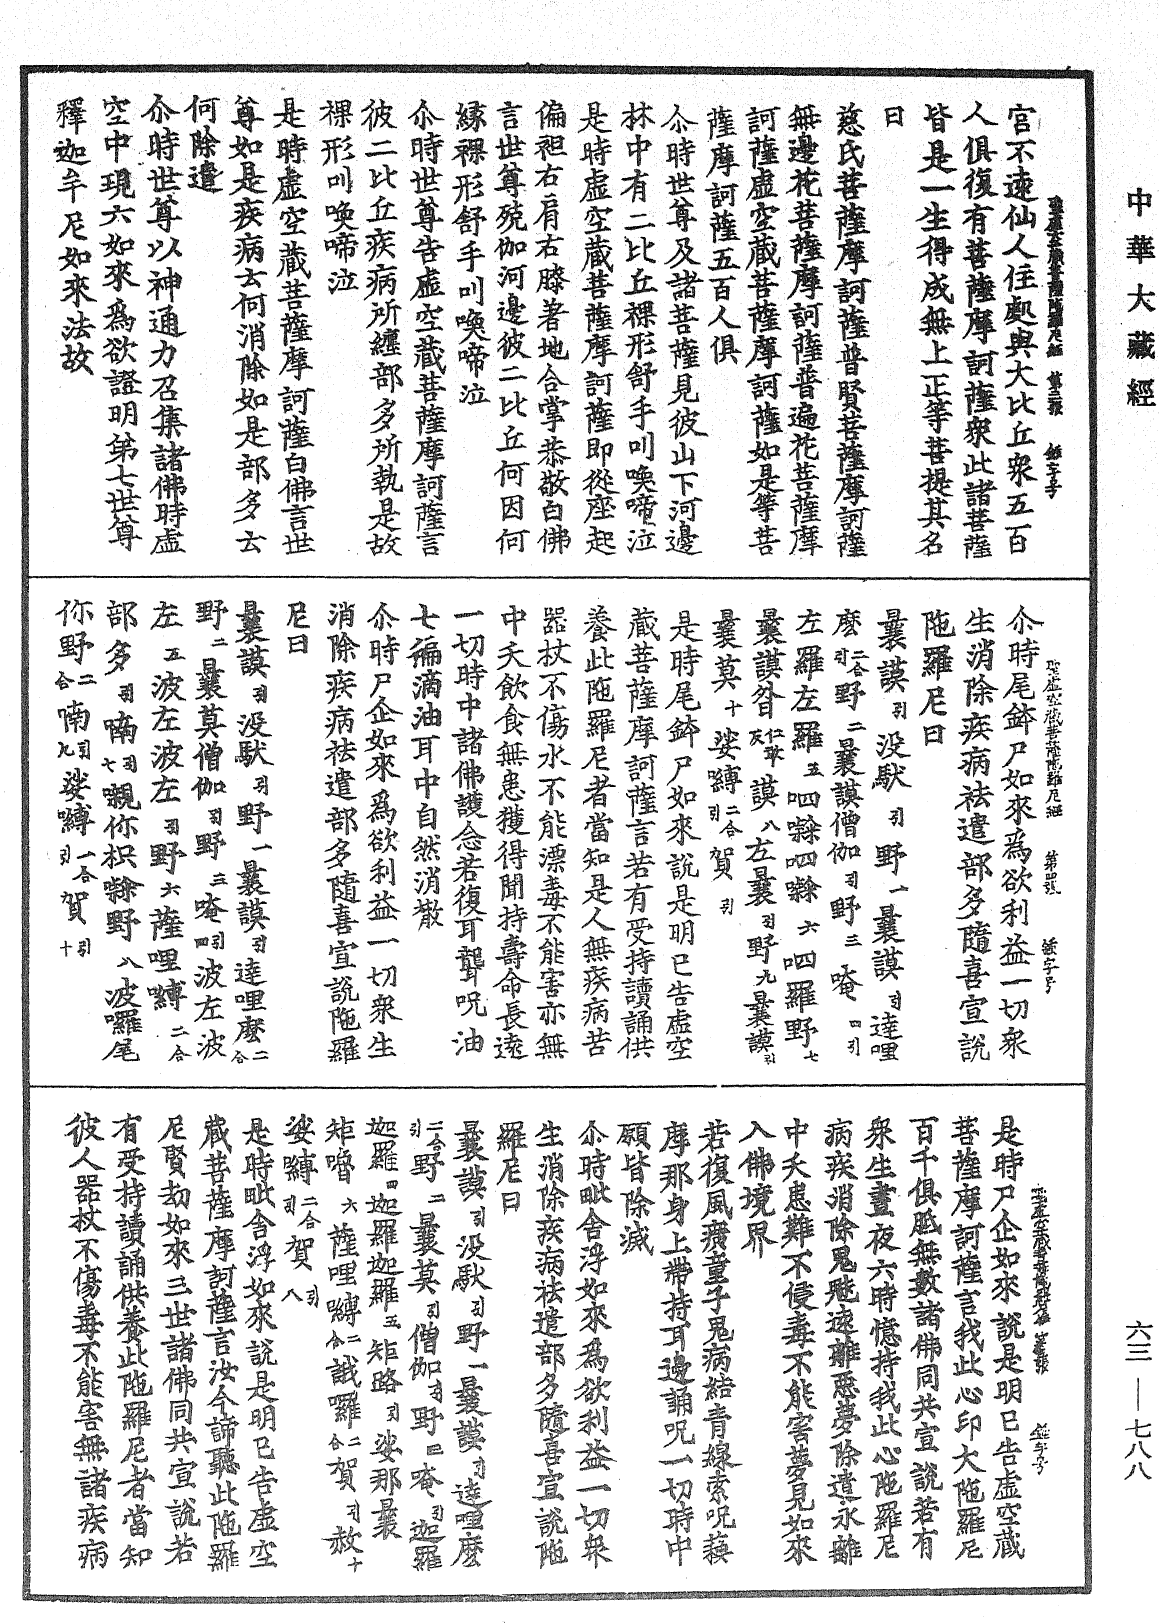 中華大藏經
聖虛空藏菩薩陀羅尼經 第三張
宮不遠仙人住處與大比丘衆五百
人俱復有菩薩摩訶薩衆此諸菩薩
皆是一生得成無上正等菩提其名
曰
慈氏菩薩摩訶薩普賢菩薩摩訶薩
無邊花菩薩摩訶薩普遍花菩薩摩
訶薩虛空藏菩薩摩訶薩如是等菩
薩摩訶薩五百人俱
尒時世尊及諸菩薩見彼山下河邊
林中有二比丘裸形舒手叫喚啼泣
是時虛空藏菩薩摩訶薩即從座起
偏袒右肩右膝著地合掌恭敬白佛
言世尊殑伽河邊彼二比丘何因何
緣裸形舒手叫喚啼泣
尒時世尊告虛空藏菩薩摩訶薩言
彼二比丘疾病所纏部多所執是故
裸形叫喚啼泣
是時虛空藏菩薩摩訶薩白佛言世
尊如是疾病云何消除如是部多云
何除遣
尒時世尊以神通力召集諸佛時虛
空中現六如來為欲證明第七世尊
釋迦牟尼如來法故
聖虛空藏菩薩陀羅尼經 第四張
尒時尾鉢尸如來為欲利益一切衆
生消除疾病袪遣部多隨喜宣說
陁羅尼曰
曩謨引没馱引野一曩謨引達哩
麽二合引野二曩謨僧伽引野三唵四引
左羅左羅五呬𪘨呬𪘨六呬羅野七
曩謨咎仁昨反謨八左曩引野九曩謨引
曩莫十娑嚩二合引賀引
是時尾鉢尸如來說是明已告虛空
藏菩薩摩訶薩言若有受持讀誦供
養此陁羅尼者當知是人無疾病苦
器杖不傷水不能漂毒不能害亦無
中夭飲食無患獲得聞持壽命長遠
一切時中諸佛護念若復耳聾呪油
七徧滴油耳中自然消散
尒時尸企如來為欲利益一切衆生
消除疾病袪遣部多隨喜宣說陁羅
尼曰
曩謨引没馱引野一曩謨引達哩麽二合
野二曩莫僧伽引野三唵四引波左波
左五波左波左引野六薩哩嚩二合
部多引喃引七嚫你枳𪘨野八波囉尾
你野二合喃引九娑嚩二合引賀引十
聖虛空藏菩薩陀羅尼經
是時尸企如來說是明已告虛空藏
菩薩摩訶薩言我此心印大陁羅尼
百千俱胝無數諸佛同共宣說若有
衆生晝夜六時憶持我此心陁羅尼
病疾消除鬼魅遠離惡夢除遣永離
中夭患難不侵毒不能害夢見如來
入佛境界
若復風癀童子鬼病結青線索呪蘓
摩那身上帶持耳邊誦呪一切時中
願皆除滅
尒時毗舍浮如來為欲利益一切衆
生消除疾病袪遣部多隨喜宣說陁
羅尼曰
曩謨引没馱引野一曩謨引達哩麽
二合引野二曩莫引僧伽引野三唵引迦羅
迦羅四迦羅迦羅五矩路引娑那曩
矩嚕六薩哩嚩二合誐囉二合賀引赦十
娑嚩二合引賀引八
是時毗舍浮如來說是明已告虛空
藏菩薩摩訶薩言汝今諦聽此陁羅
尼賢劫如來三世諸佛同共宣說若
有受持讀誦供養此陁羅尼者當知
彼人器杖不傷毒不能害無諸疾病
六三—七八八